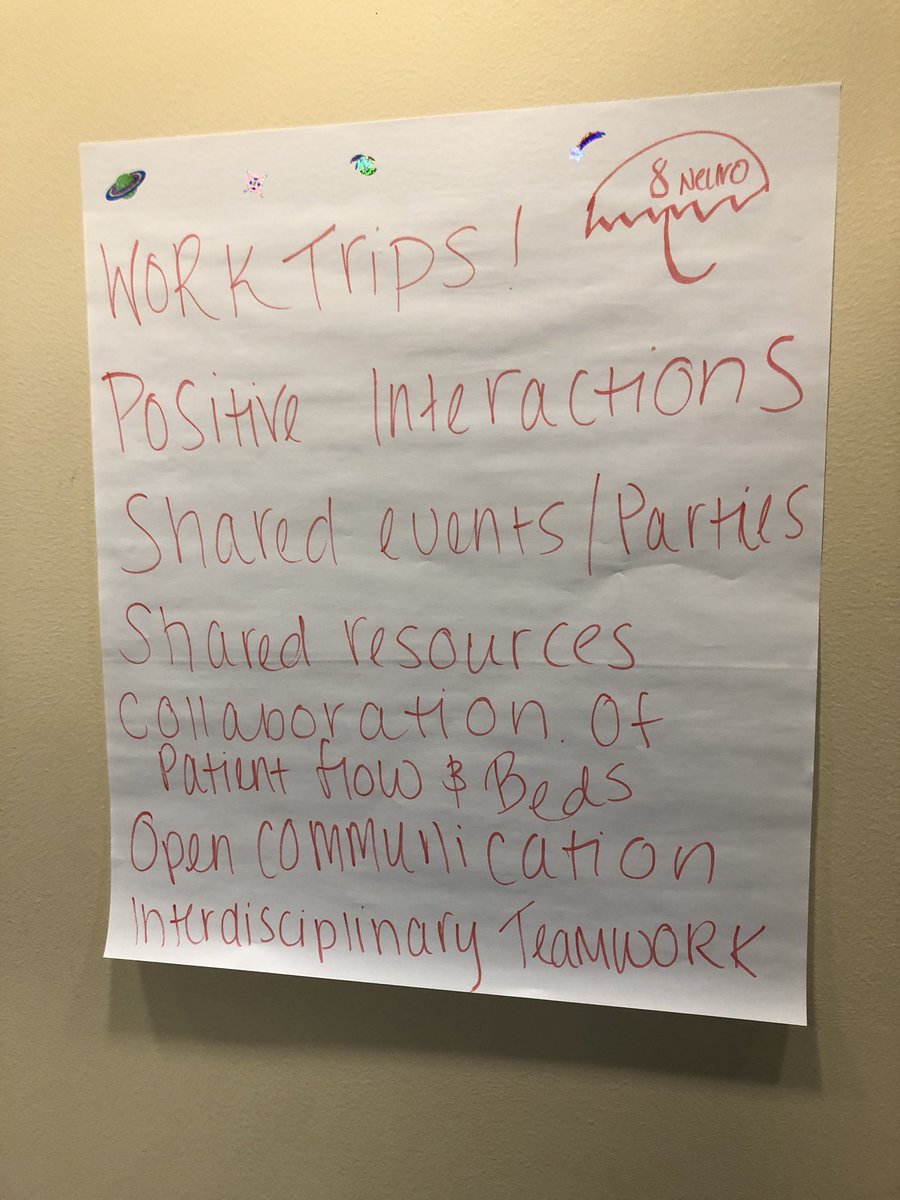 8 Neuro
Work Trips!
Positive Interactions
Shared events/Parties
Shared resources
Collaboration of
Patient flow & Beds
Open communication
Interdisciplinary Teamwork